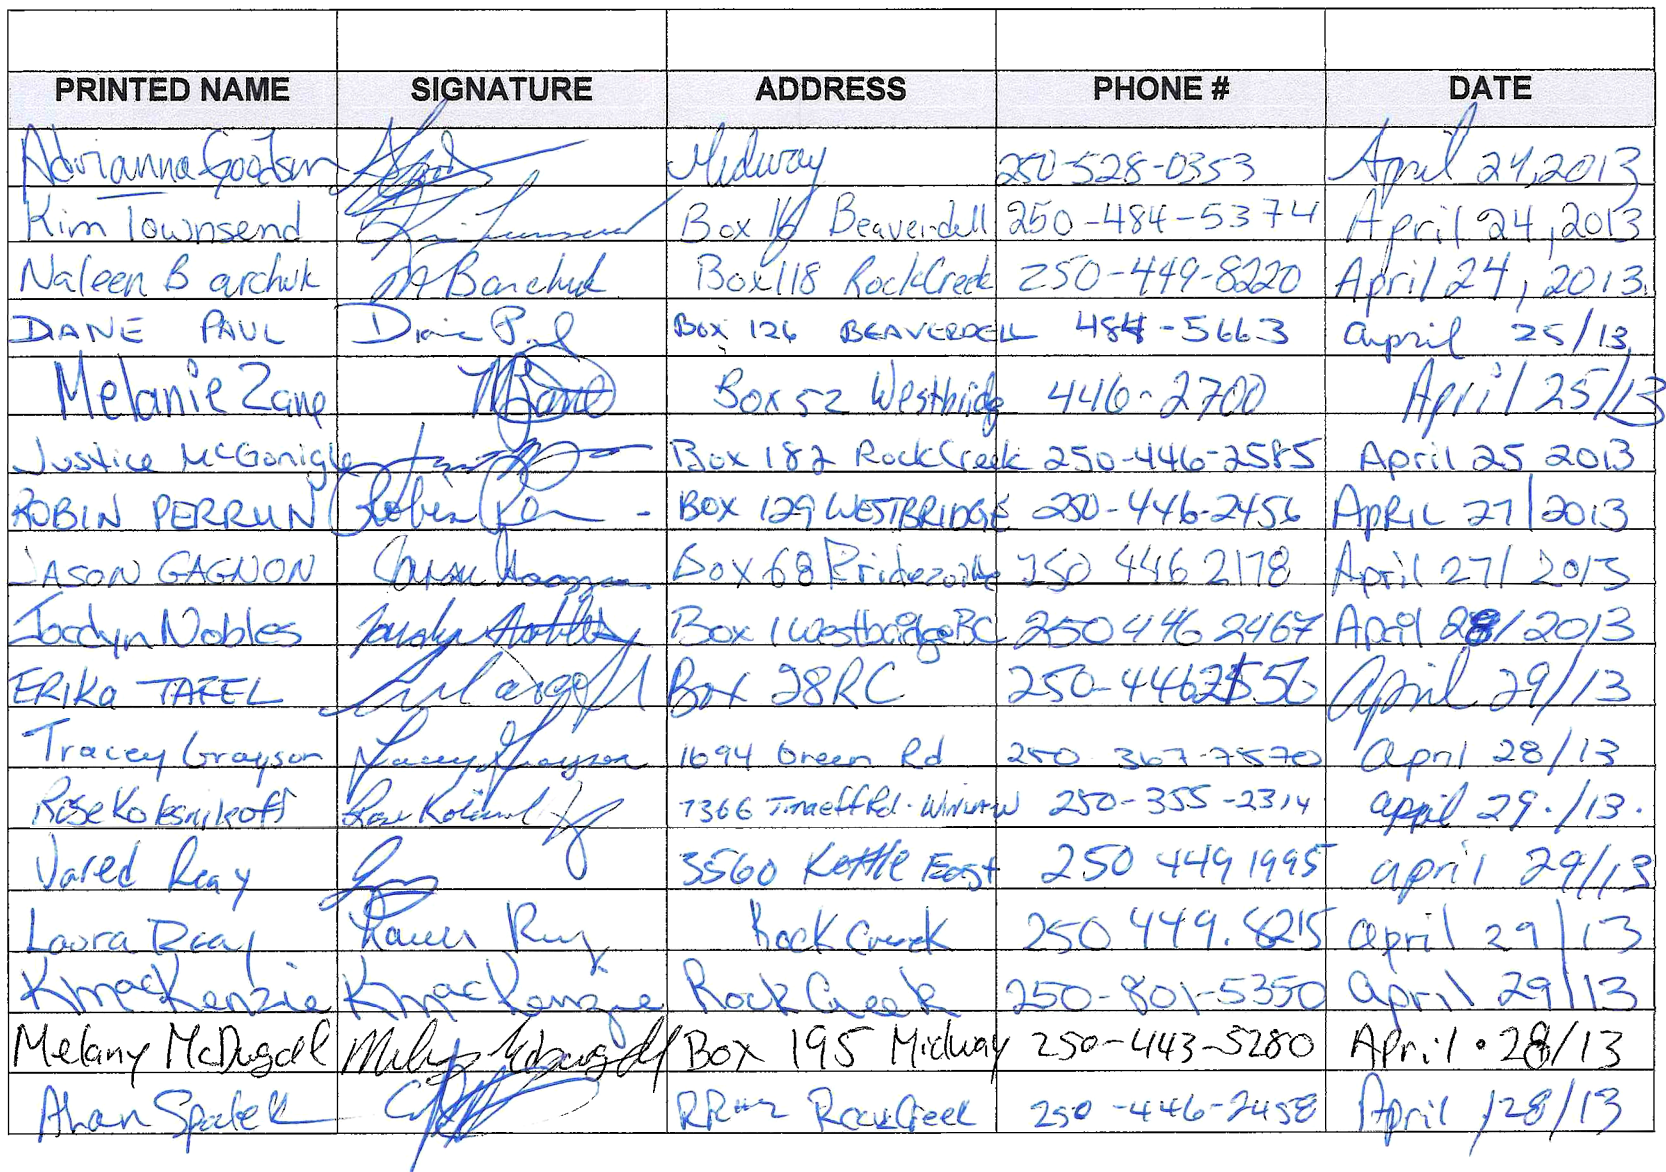 PRINTED NAME SIGNATURE ADDRESS PHONE # DATE
Adrianna Goodsen Midway 250-528-0353 April 24, 2013
Kim Townsend Kim Townsend Box 16 Beaverdell 250-484-5374 April 24, 2013
Naleen Barchuk N Barchuk Box 118 Rock Creek 250-449-8220 April 24, 2013.
DIANE PAUL Diane Paul BOX 126 BEAVERDELL 484-5663 april 25/13
Melanie Zane Box 52 Westbridge 446-2700 April 25/13
Justice McGonigle Box 182 Rock Creek 250-446-2585 April 25 2013
ROBIN PERRUN Robin BOX 129 WESTBRIDGE 250-446-2456 APRIL 27/2013
JASON GAGNON Box 68 250 446 2178 April 27/2013
Jocelyn Nobles Box 1 Westbridge BC 250 446 2467 April 28/2013
ERIKA TAFEL Box 28 RC 250-446 2556 April 29/13
Tracey Grayson Tracey Grayson 1694 Green Rd 250 367-7570 april 28/13
Rose Kolesnikoff Rose 7366 Rd. 250-355-2314 april 29./13.
Jared Reay 3560 Kettle East 250 449 1995 april 29/13
Laura Reay Rock Creek 250 449.8215 april 29/13
K MacKenzie K MacKenzie Rock Creek 250-801-5350 April 29/13
Melany McDugall Box 195 Midway 250-443-5280 April • 28/13
Spatek RR#2 Rock Creek 250-446-2458 April /28/13